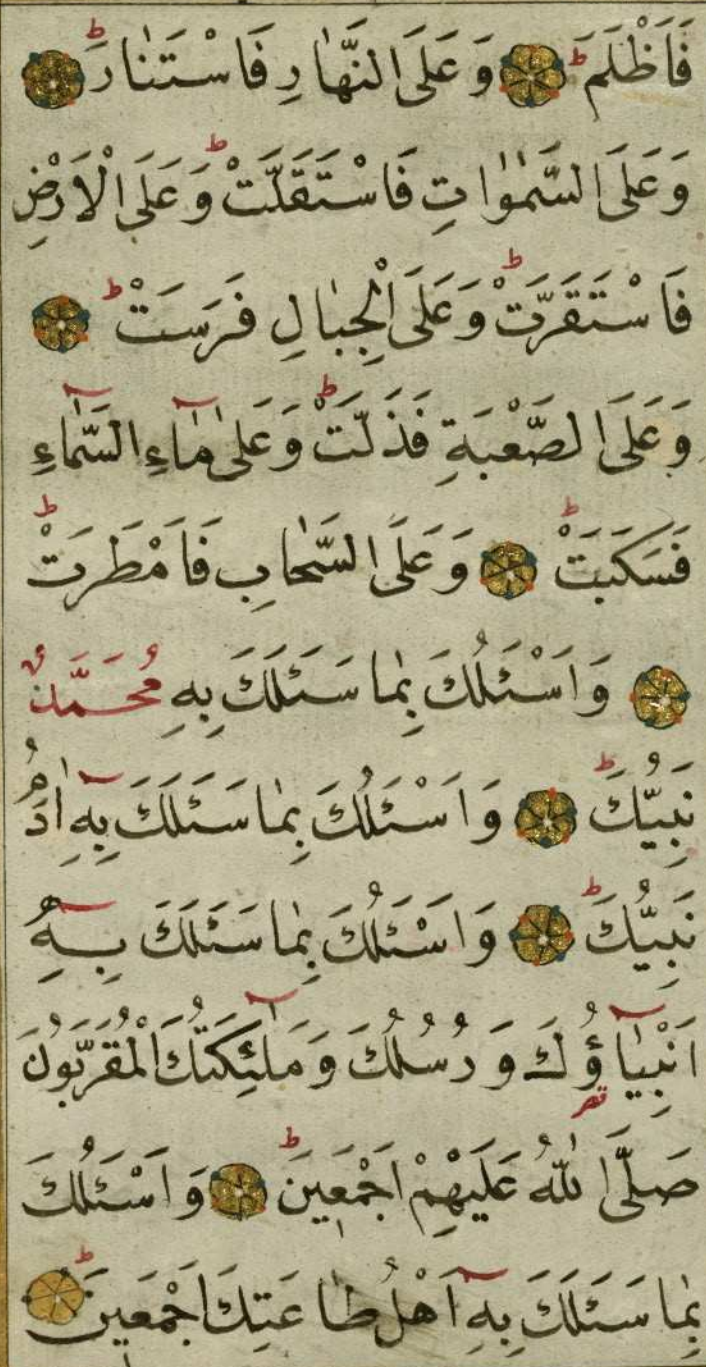 فَاَظْلَمَ ط وَعَلَى النَّهَارِ فَاسْتَنَارَ ط
وَعَلَى السَّمٰوَاتِ فَاسْتَقَلَّتْ ط وَعَلَى الْاَرْضِ
فَاسْتَقَرَّتْ ط وَعَلَى الْجِبَالِ فَرَسَتْ ط
وَعَلَى الصَّعْبَةِ فَذَلَّتْ ط وَعَلٰى مَآءِ السَّمَآءِ
فَسَكَبَتْ ط وَعَلَى السَّحَابِ فَاَمْطَرَتْ ط
وَاَسْئَلُكَ بِمَا سَئَلَكَ بِهِ مُحَمَّدٌ
نَبِيُّكَ ط وَاَسْئَلُكَ بِمَا سَئَلَكَ بِهِٓ اٰدَمُ
نَبِيُّكَ ط وَاَسْئَلُكَ بِمَا سَئَلَكَ بِهِٓ
اَنْبِيَآؤُكَ وَرُسُلُكَ وَمَلٰٓئِكَتُكَ الْمُقَرَّبُونَ
صَلَّى اللّٰهُ عَلَيْهِمْ اَجْمَعِينَ ط وَاَسْئَلُكَ
بِمَا سَئَلَكَ بِهِٓ اَهْلُ طَاعَتِكَ اَجْمَعِينَ ط